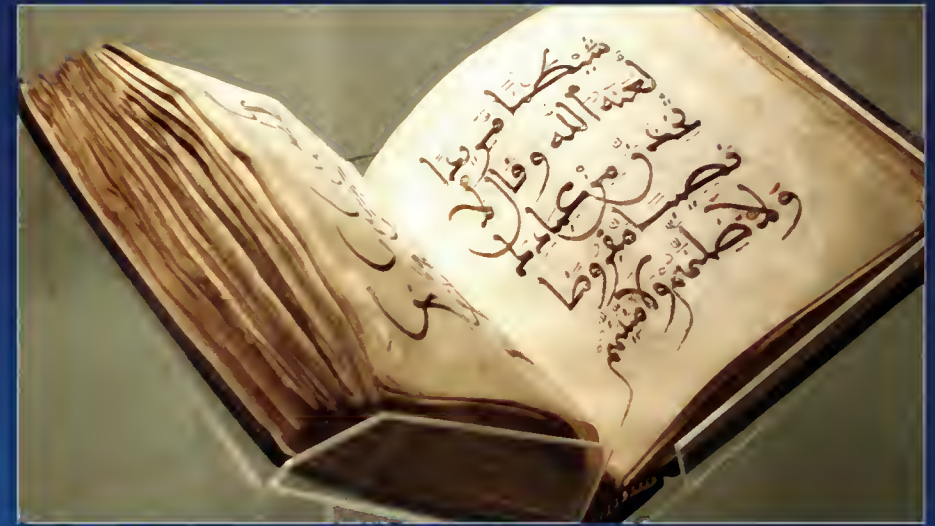 شيطنا مريدا
لعنه الله وقال لا
تخذن من عبادك
نصيبا مفروضا
ولأضلنهم ولأ
منينهم